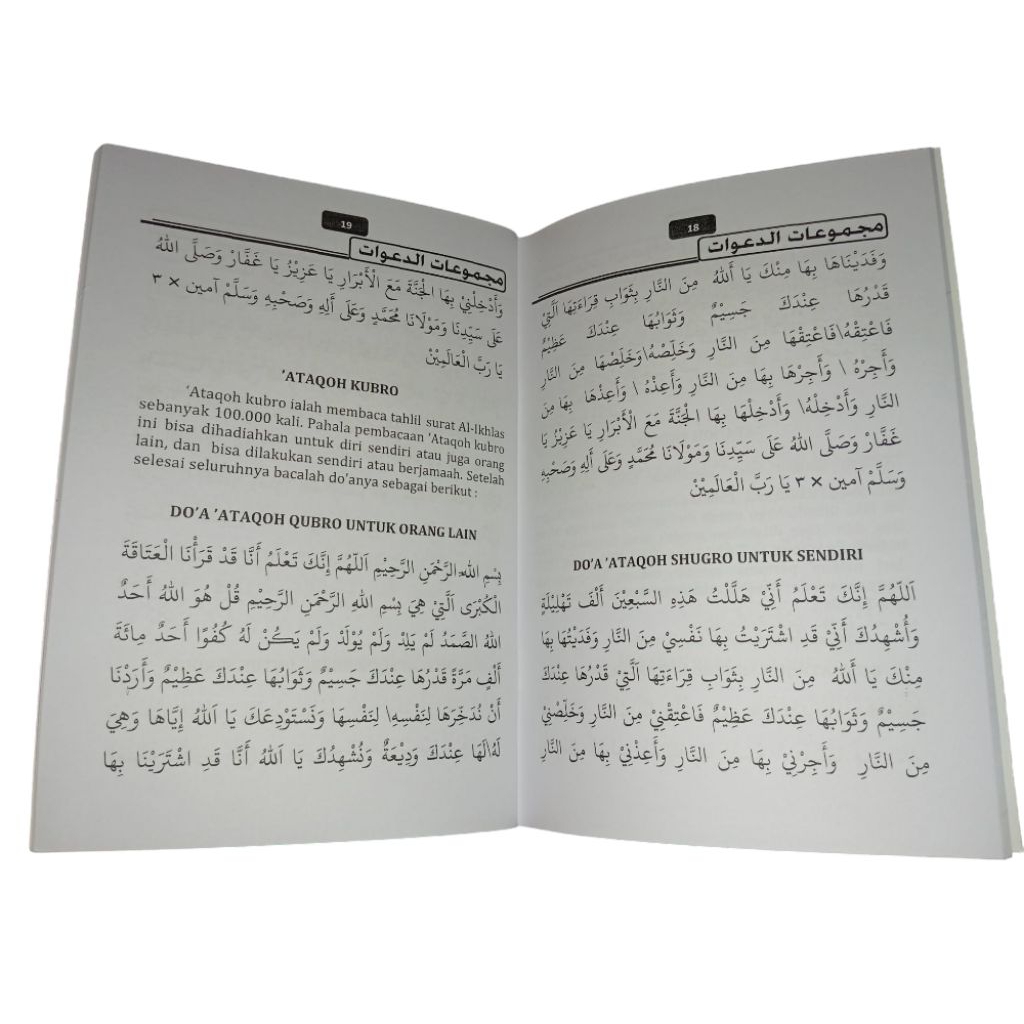 18
مجموعات الدعوات
وَفَدَيْنَاهَا بِهَا مِنْكَ يَا اَللهُ مِنَ النَّارِ بِثَوَابِ قِرَاءَتِهَا اَلَّتِيْ
قَدْرُهَا عِنْدَكَ جَسِيْمٌ وَثَوَابُهَا عِنْدَكَ عَظِيْمٌ
فَاعْتِقْهُ\فَاعْتِقْهَا مِنَ النَّارِ وَخَلِّصْهُ\وَخَلِّصْهَا مِنَ النَّارِ
وَأَجِرْهُ \ وَأَجِرْهَا بِهَا مِنَ النَّارِ وَأَعِذْهُ \ وَأَعِذْهَا بِهَا مِنَ
النَّارِ وَأَدْخِلْهُ\ وَأَدْخِلْهَا بِهَا الْجَنَّةَ مَعَ الْأَبْرَارِ يَا عَزِيْزُ يَا
غَفَّارُ وَصَلَّى اللهُ عَلَى سَيِّدِنَا وَمَوْلَانَا مُحَمَّدٍ وَعَلَى أَلِهِ وَصَحْبِهِ
وَسَلَّمْ آمين × ٣ يَا رَبَّ الْعَالَمِيْنْ
DO'A 'ATAQOH SHUGRO UNTUK SENDIRI
اَللّٰهُمَّ إِنَّكَ تَعْلَمُ أَنِّيْ هَلَّلْتُ هَذِهِ السَّبْعِيْنَ أَلْفَ تَهْلِيْلَةٍ
وَأُشْهِدُكَ أَنِّيْ قَدِ اشْتَرَيْتُ بِهَا نَفْسِيْ مِنَ النَّارِ وَفَدَيْتُهَا بِهَا
مِنْكَ يَا اَللهُ مِنَ النَّارِ بِثَوَابِ قِرَاءَتِهَا اَلَّتِيْ قَدْرُهَا عِنْدَكَ
جَسِيْمٌ وَثَوَابُهَا عِنْدَكَ عَظِيْمٌ فَاعْتِقْنِيْ مِنَ النَّارِ وَخَلِّصْنِيْ
مِنَ النَّارِ وَأَجِرْنِيْ بِهَا مِنَ النَّارِ وَأَعِذْنِيْ بِهَا مِنَ النَّارِ
19
مجموعات الدعوات
وَأَدْخِلْنِيْ بِهَا الْجَنَّةَ مَعَ الْأَبْرَارِ يَا عَزِيْزُ يَا غَفَّارْ وَصَلَّى اللهُ
عَلَى سَيِّدِنَا وَمَوْلَانَا مُحَمَّدٍ وَعَلَى أَلِهِ وَصَحْبِهِ وَسَلَّمْ آمين × ٣
يَا رَبَّ الْعَالَمِيْنْ
'ATAQOH KUBRO
'Ataqoh kubro ialah membaca tahlil surat Al-Ikhlas
sebanyak 100.000 kali. Pahala pembacaan 'Ataqoh kubro
ini bisa dihadiahkan untuk diri sendiri atau juga orang
lain, dan bisa dilakukan sendiri atau berjamaah. Setelah
selesai seluruhnya bacalah do'anya sebagai berikut :
DO'A 'ATAQOH QUBRO UNTUK ORANG LAIN
بِسْمِ اللهِ الرَّحْمَنِ الرَّحِيْمِ اَللّٰهُمَّ إِنَّكَ تَعْلَمُ أَنَّا قَدْ قَرَأْنَا الْعَتَاقَةَ
الْكُبْرَى اَلَّتِيْ هِيَ بِسْمِ اللهِ الرَّحْمَنِ الرَّحِيْمِ قُلْ هُوَ اللهُ أَحَدٌ
اللهُ الصَّمَدُ لَمْ يَلِدْ وَلَمْ يُوْلَدْ وَلَمْ يَكُنْ لَهُ كُفُوًا أَحَدٌ مِائَةَ
أَلْفِ مَرَّةً قَدْرُهَا عِنْدَكَ جَسِيْمٌ وَثَوَابُهَا عِنْدَكَ عَظِيْمٌ وَأَرَدْنَا
أَنْ نُدَخِّرَهَا لِنَفْسِهِ\ لِنَفْسِهَا وَنَسْتَوْدِعَكَ يَا اَللهُ إِيَّاهَا وَهِيَ
لَهُ\لَهَا عِنْدَكَ وَدِيْعَةٌ وَنُشْهِدُكَ يَا اَللهُ أَنَّا قَدِ اشْتَرَيْنَا بِهَا